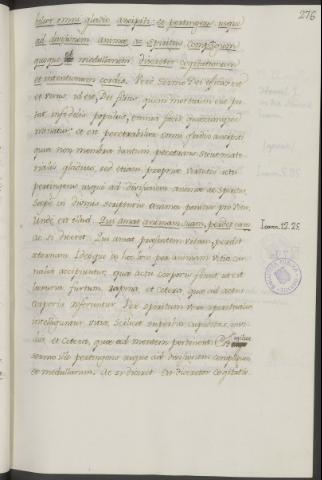 276
bilior omni gladio ancipiti: et pertingens usque
ad divisionem animae ac spiritus compagum
quoque ac medullarum, discretor cogitationum
et intentionum cordis. Vere sermo Dei efficax est
et vivus, id est, Dei filius quem mortuum esse pu
tat infidelis populus, omnia facit quaecumque
et est penetrabilior omni gladio ancipiti
quia non membra tantum penetrat sicut mate
rialis gladius, sed etiam propria virtute sua
pertingens usque ad divisionem animae et spiritus.
Saepe in divinis scripturis anima ponitur pro vita.
Unde est illud. Qui amat animam suam, perdet eam
Ioann. 12. 25
ac si diceret. Qui amat praesentem vitam, perdit
aeternam. Ideoque in hoc loco per animam vitia car
nalia accipiuntur, quae actu corporis fiunt, id est
luxuria, furtum, rapina, et cetera, quae ad actus
corporis referuntur. Per spiritum vero spiritualia
intelliguntur vitia, scilicet superbia, cupiditas, invi
dia, et cetera, quae ad mentem pertinent.
sermo ille pertingens usque ad divisionem compagum
et medullarum. Ac si diceret. Est discretor cogitatio